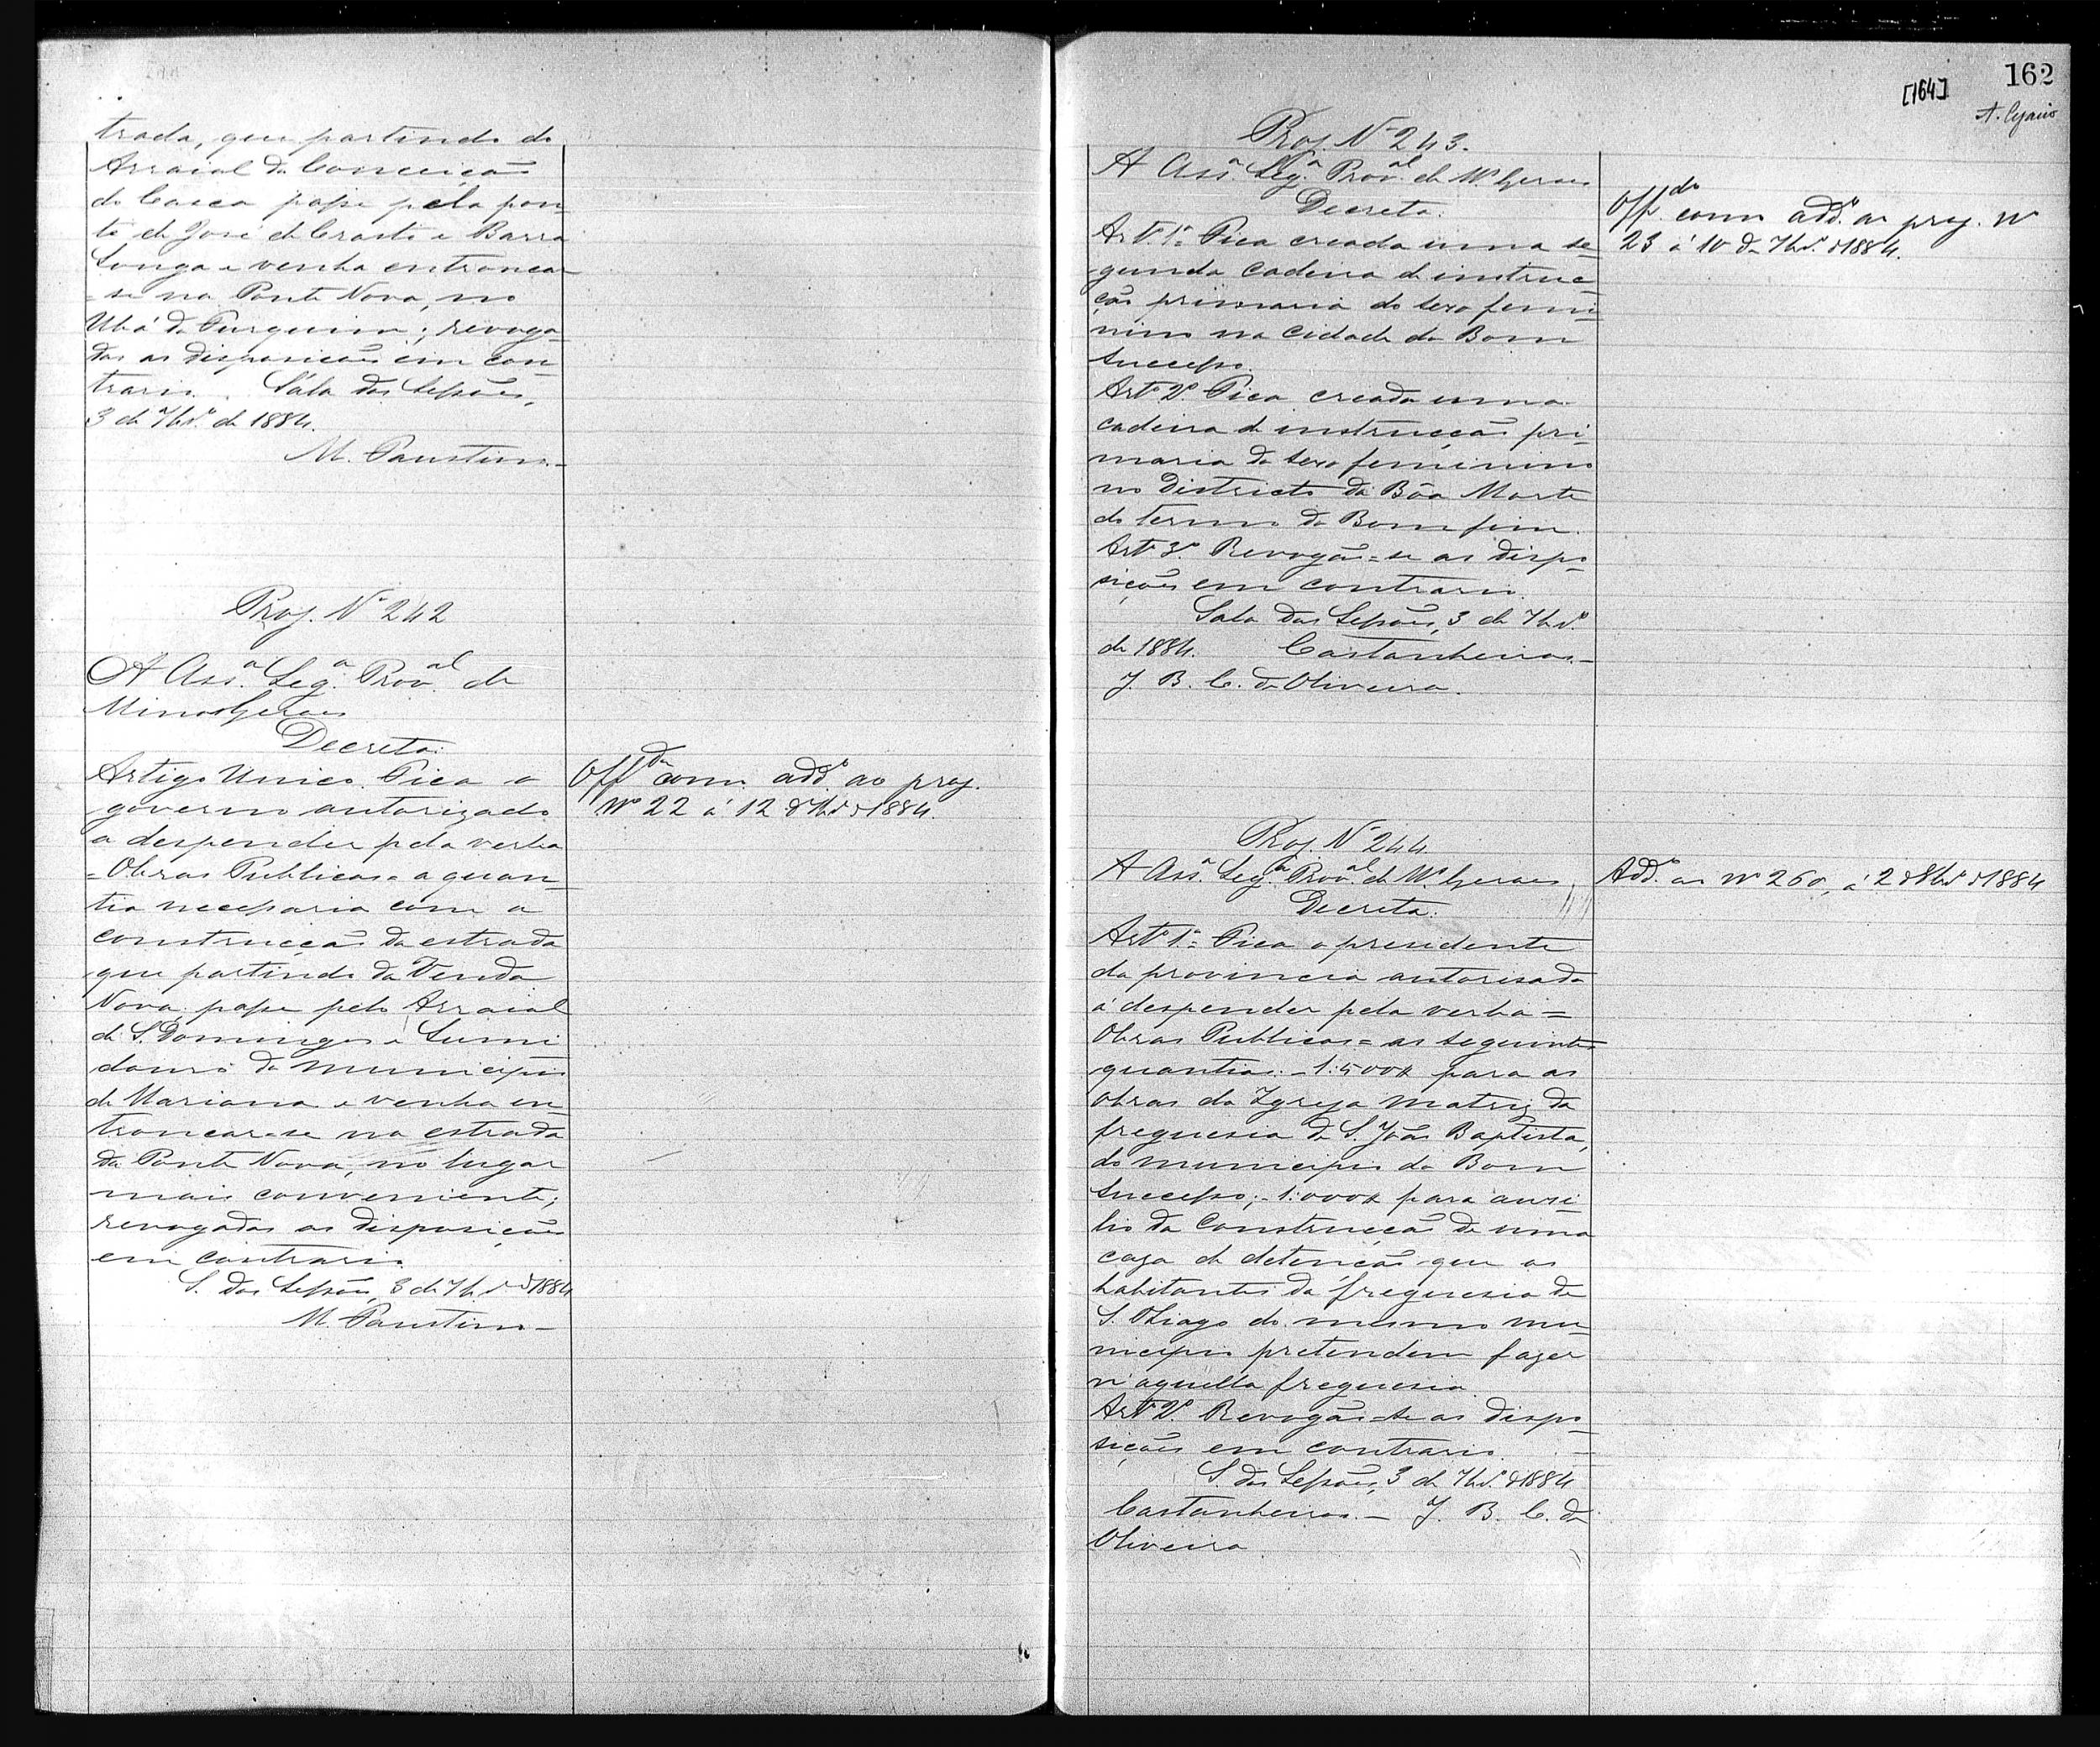 trada, que partindo do
Arraial da Conceição
do Casca passe pela pon-
te de José de Crasto e Barra
Longa e venha entroncar
-se na Ponte Nova, no
Ubá do Furquim; revoga-
das as disposições em con-
trario. Sala das Sessões,
3 de 7br.º de 1884.
M. Faustino.-
Proj. Nº 242
A Ass.ª Leg.ª Prov.al de
Minas Geraes
Decreta:
Artigo Unico. Fica o
governo autorizado
a despender pela verba
=Obras Publicas= a quan-
tia necessaria com a
construcção da estrada
que partindo da Venda
Nova, passe pelo Arraial
de S. Domingos e Sumi
douro do municipio
de Mariana e venha en-
troncar-se na estrada
da Ponte Nova, no lugar
mais conveniente;
revogadas as disposições
em contrario.
S. das Sessões, 3 de 7br.º d 1884
M. Faustino-
Off.do como add.º ao proj.
Nº 22 á 12 d 7br.º d 1884.
162
[164]
Proj. Nº 243.
A Ass.ª Leg.ª Prov.al de M.s Geraes
Decreta:
Art.º 1º= Fica creada uma se-
gunda cadeira de instruc-
ção primaria do sexo femi-
nino na cidade do Bom
Successo.
Art.º 2º. Fica creada uma
cadeira de instrucção pri-
maria do sexo feminino
no districto da Bôa Morte
do termo do Bomfim.
Art.º 3º. Revogão=se as dispo-
sições em contrario.
Sala das Sessões, 3 de 7br.º
de 1884. Castanheiras.-
J. B. C. de Oliveira.
Off.do como add.º ao proj. Nº
23 á 10 de 7br.º d 1884.
Proj. Nº 244
A Ass.ª Leg.ª Prov.al de M.s Geraes,
Decreta:
Art.º 1º= Fica o presidente
da provincia autorisado
á despender pela verba=
Obras Publicas= as seguintes
quantias:- 1:500$ para as
obras da Igreja Matriz da
freguesia de S. João Baptista,
do municipio do Bom
Successo;- 1:000$ para auxi-
lio da construcção de uma
caza de detenção que os
habitantes da freguesia de
S. Thiago do mesmo mu-
nicipio pretendem fazer
n'aquella freguesia.
Art.º 2º. Revogão-se as dispo-
sições em contrario.
S. das Sessões, 3 de 7br.º d 1884
Castanheiras.- J. B. C. de
Oliveira
Add.º ao Nº 260, á 2 d 8br.º d 1884